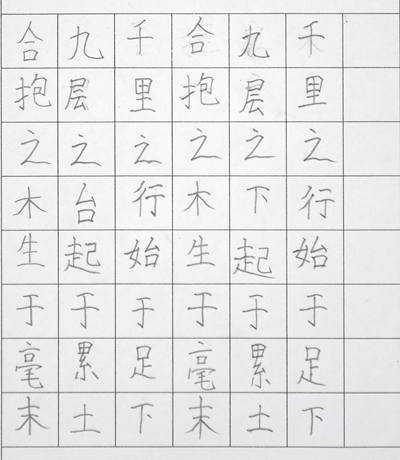 合抱之木生于毫末
九层之台起于累土
千里之行始于足下
合抱之木生于毫末
九层之下起于累土
千里之行始于足下